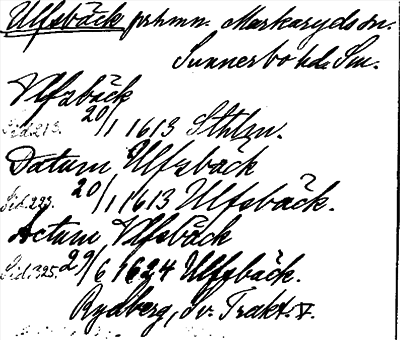 Ulfsbäck prhmn. Markaryds sn.
Sunnerbo hd. Sm.
Vlfzbäck
Sid. 213. 20/1 1613 Sthlm.
Datum Ulfzbäck
Sid. 223. 20/1 1613 Ulfsbäck.
Actum Vlfsbäck
Sid. 325. 29/6 1624 Ulffbäck.
Rydberg, Sv. Trakt. V.